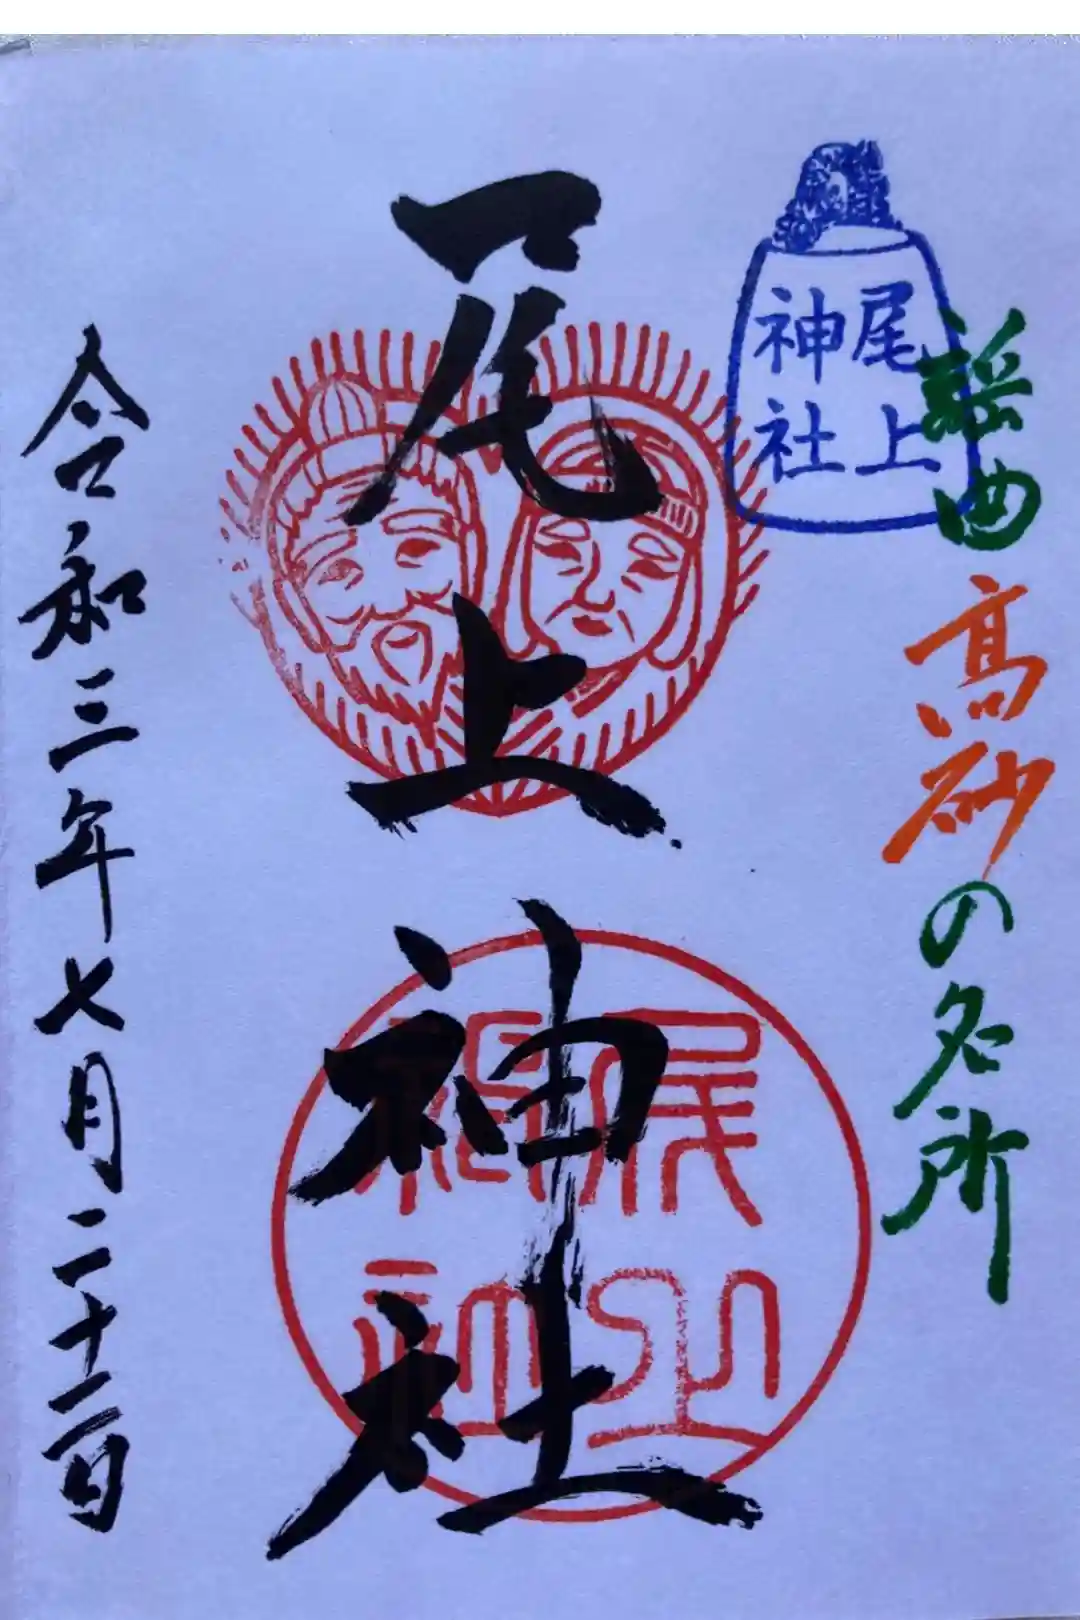 謡曲高砂の名所
尾上
神社
尾上神社
尾上
神社
令和三年七月二十一日